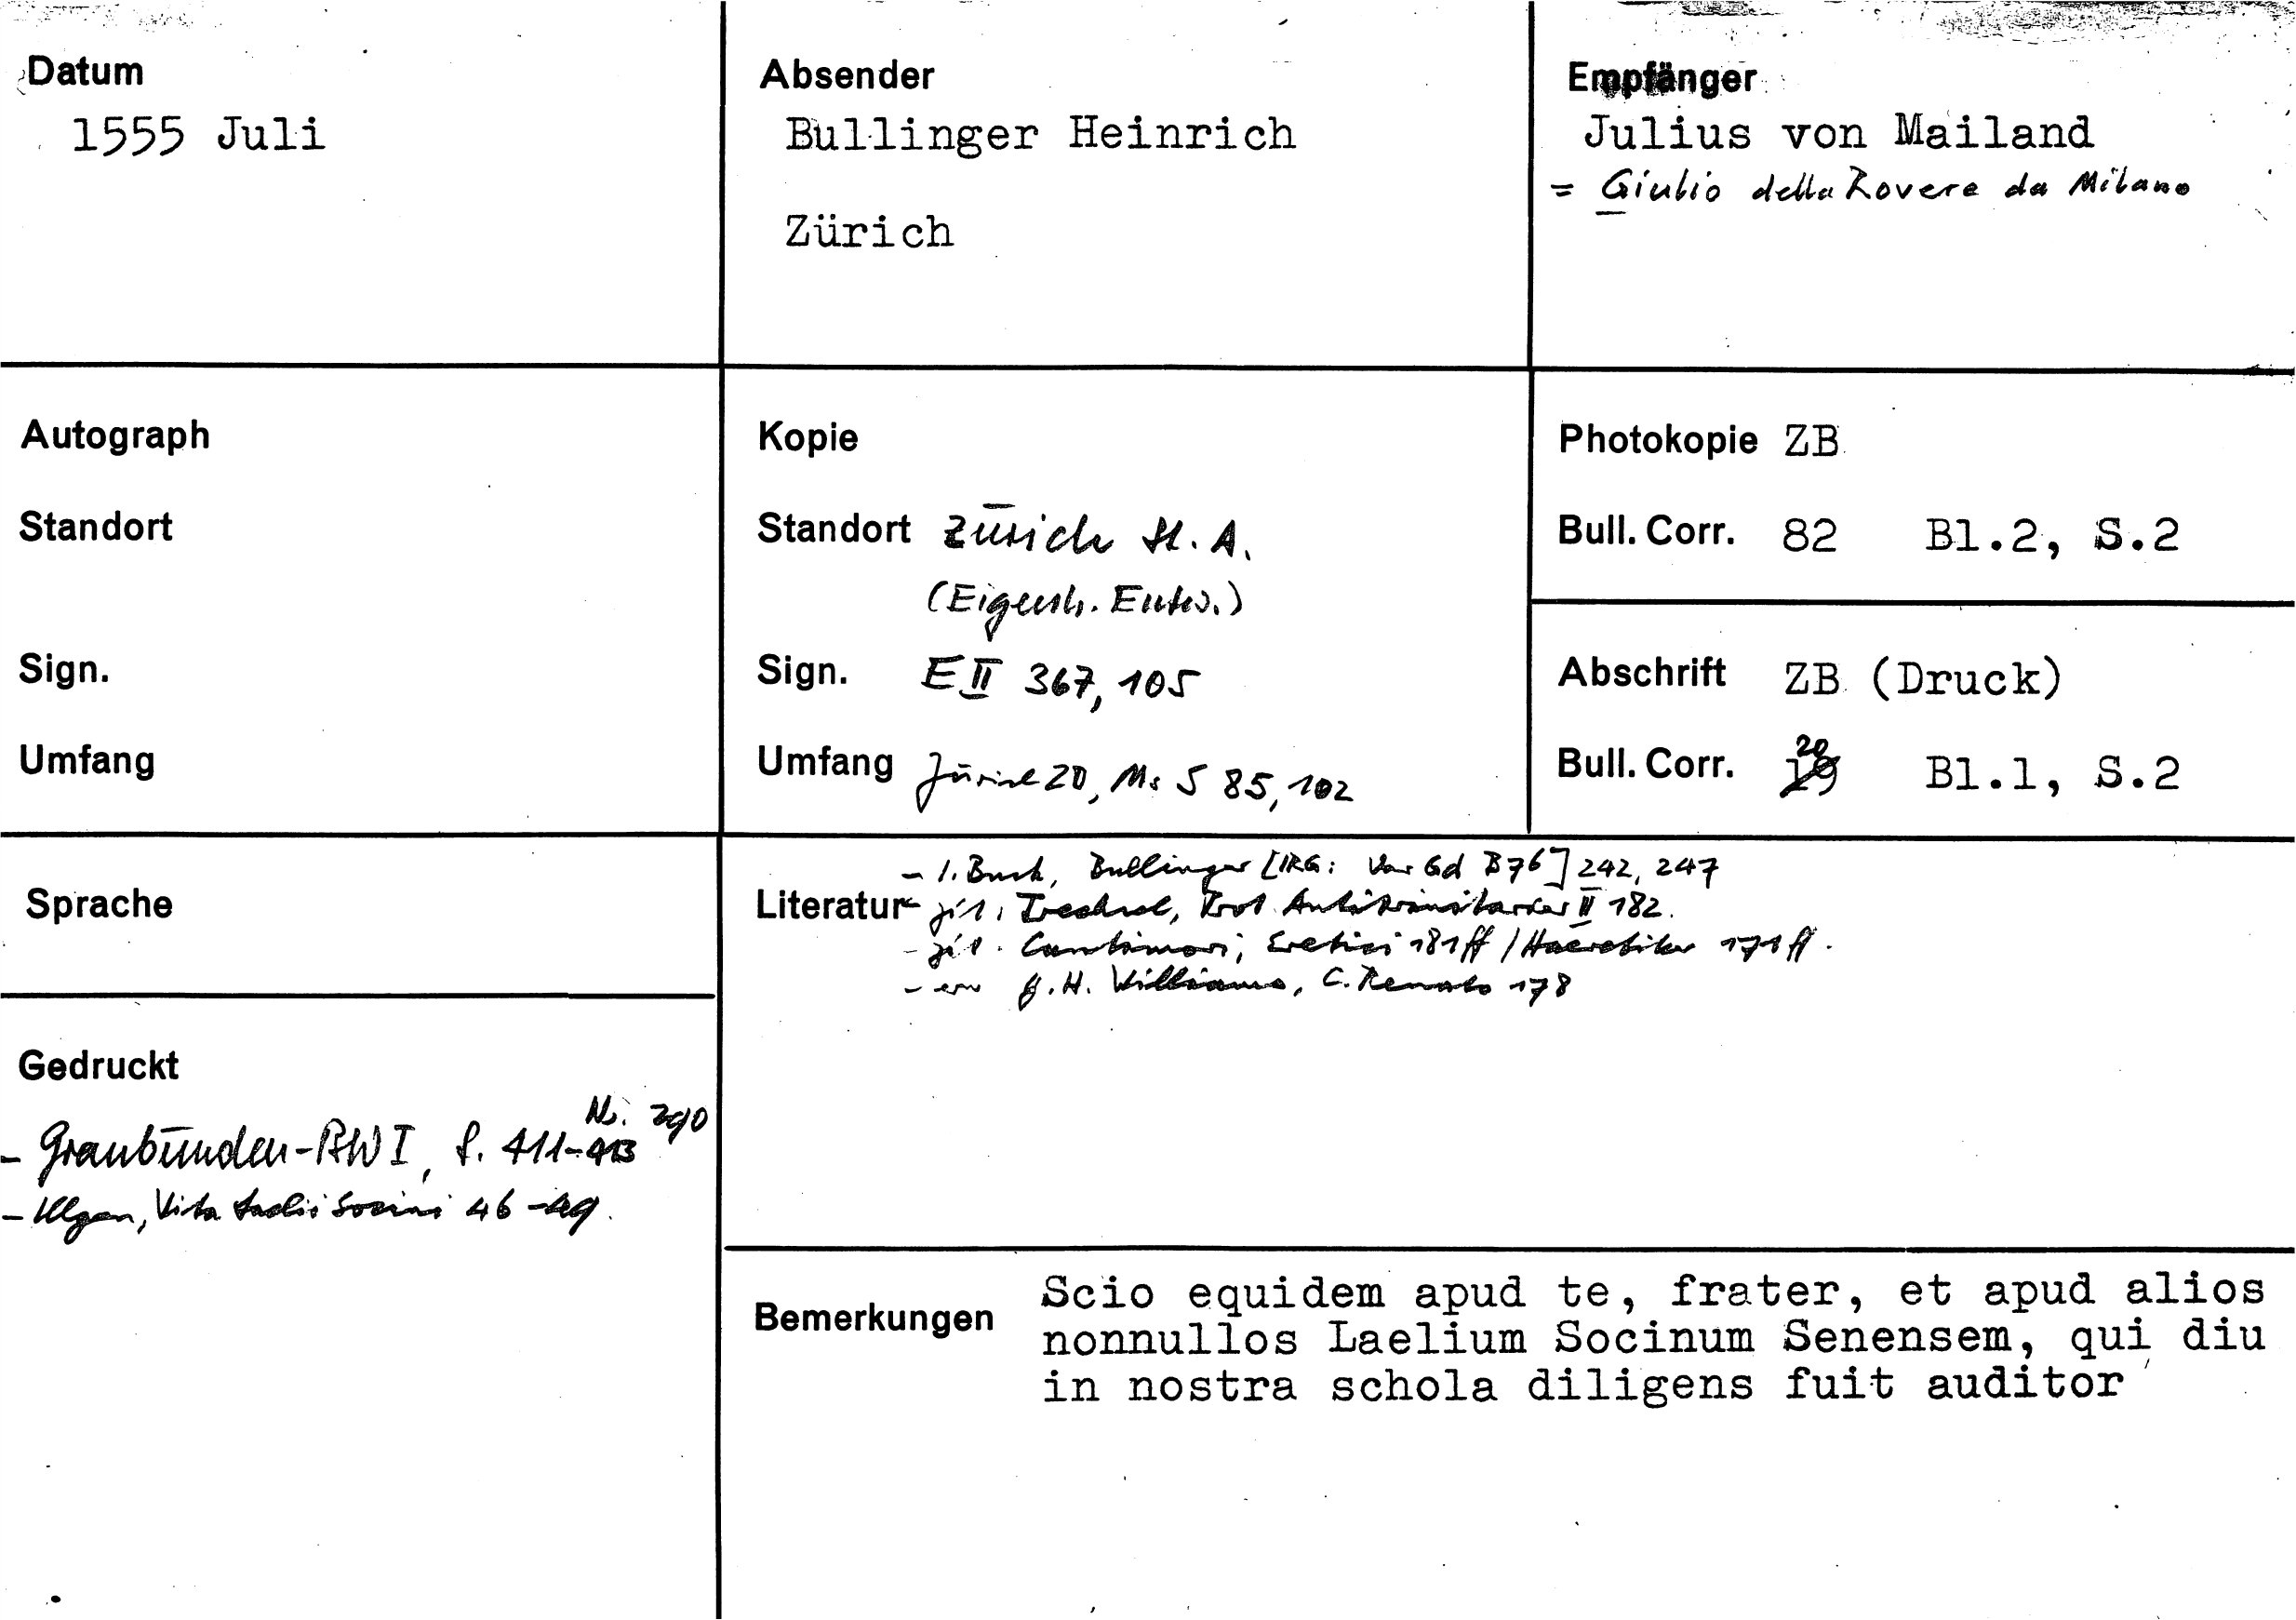 Datum
1555 Juli
Absender
Bullinger Heinrich
Zürich
Empfänger
Julius von Mailand
= Giulio della Rovere da Milano
Autograph
Standort
Sign.
Umfang
Kopie
Standort Zürich St. A.
(Eigenh. Entw.)
Sign. E II 367, 105
Umfang Zürich ZB, Ms S 85, 102
Photokopie ZB
Bull. Corr. 82 Bl.2, S.2
Abschrift ZB (Druck)
20
Bull. Corr. 19 Bl.1, S.2
Sprache
Gedruckt
Nr. 290
- Graubünden-BW I, S. 411-413
- Illgen, Vita Laelii Socini 46-49.
- Bullinger [IRG: Gd B76] 242, 247
Literatur - zit. Trechsel, Prot. Antitrinitarier II 182.
- zit. Cantimori, Eretici 181ff / Haeretiker 171ff.
- G.H. Williams, C. Renato 178
Bemerkungen
Scio equidem apud te, frater, et apud alios
nonnullos Laelium Socinum Senensem, qui diu
in nostra schola diligens fuit auditor